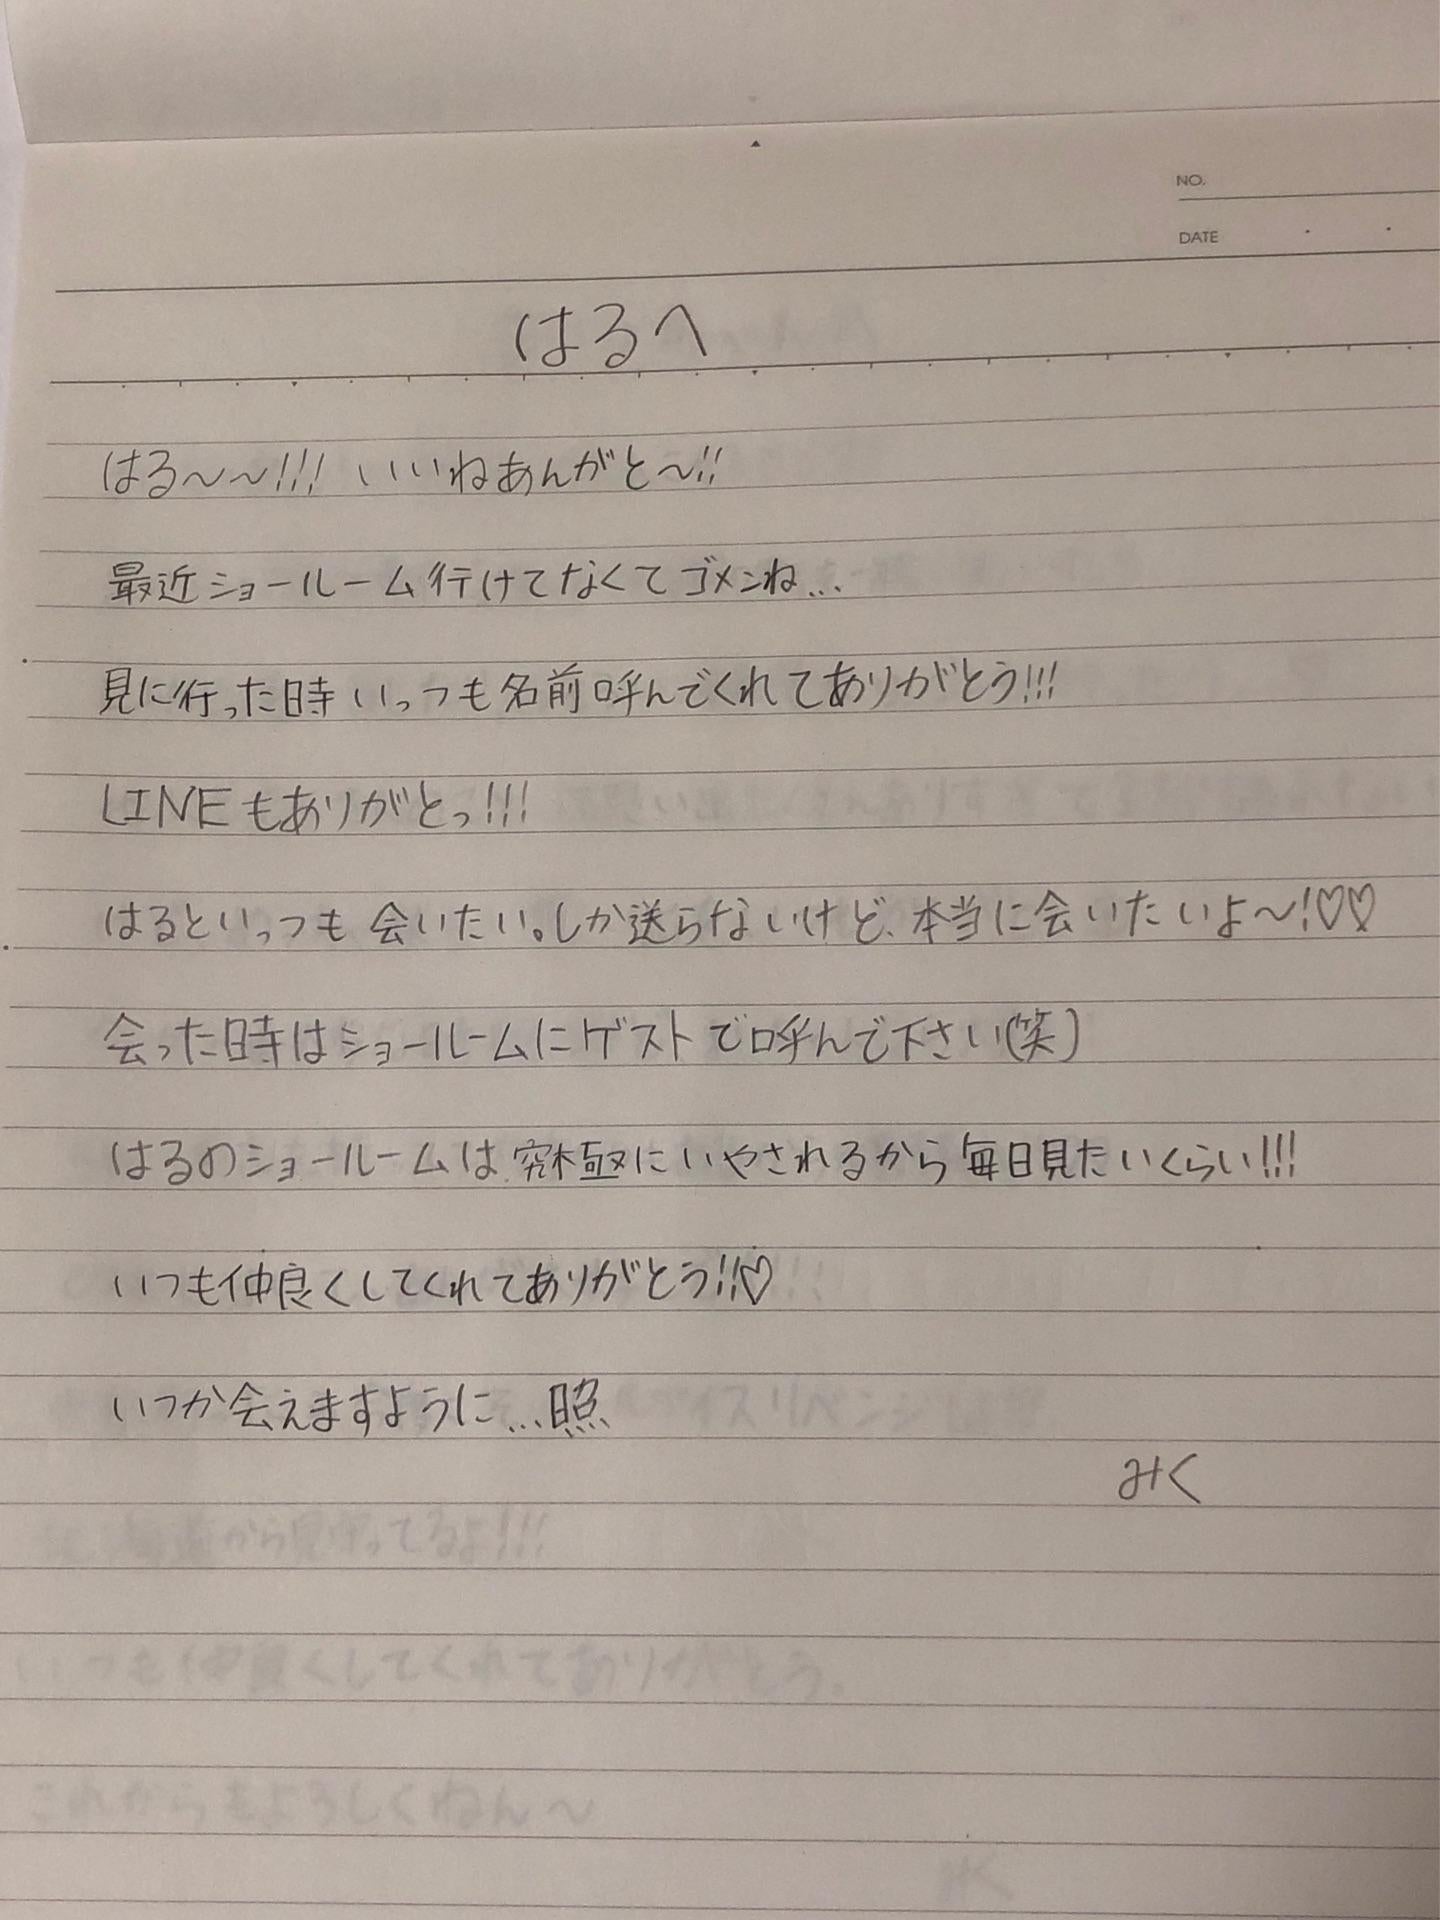 NO.
DATE
はるへ
はる〜〜!!! いいねあんがと〜!!
最近ショールーム行けてなくてゴメンね...
見に行った時いっつも名前呼んでくれてありがとう!!!
LINEもありがとっ!!!
はるといっつも会いたい。しか送らないけど、本当に会いたいよ〜!♡♡
会った時はショールームにゲストで呼んで下さい(笑)
はるのショールームは究極にいやされるから毎日見たいくらい!!!
いつも仲良くしてくれてありがとう!!♡
いつか会えますように...照
みく
から見守ってるよ!!!
いつも仲良くしてくれてありがとう。
これからもよろしくねん〜
みく